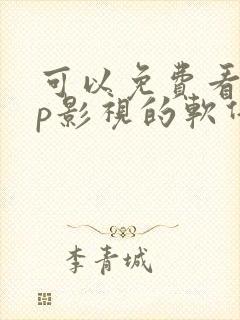 可以免費看
p影視的軟
李青城